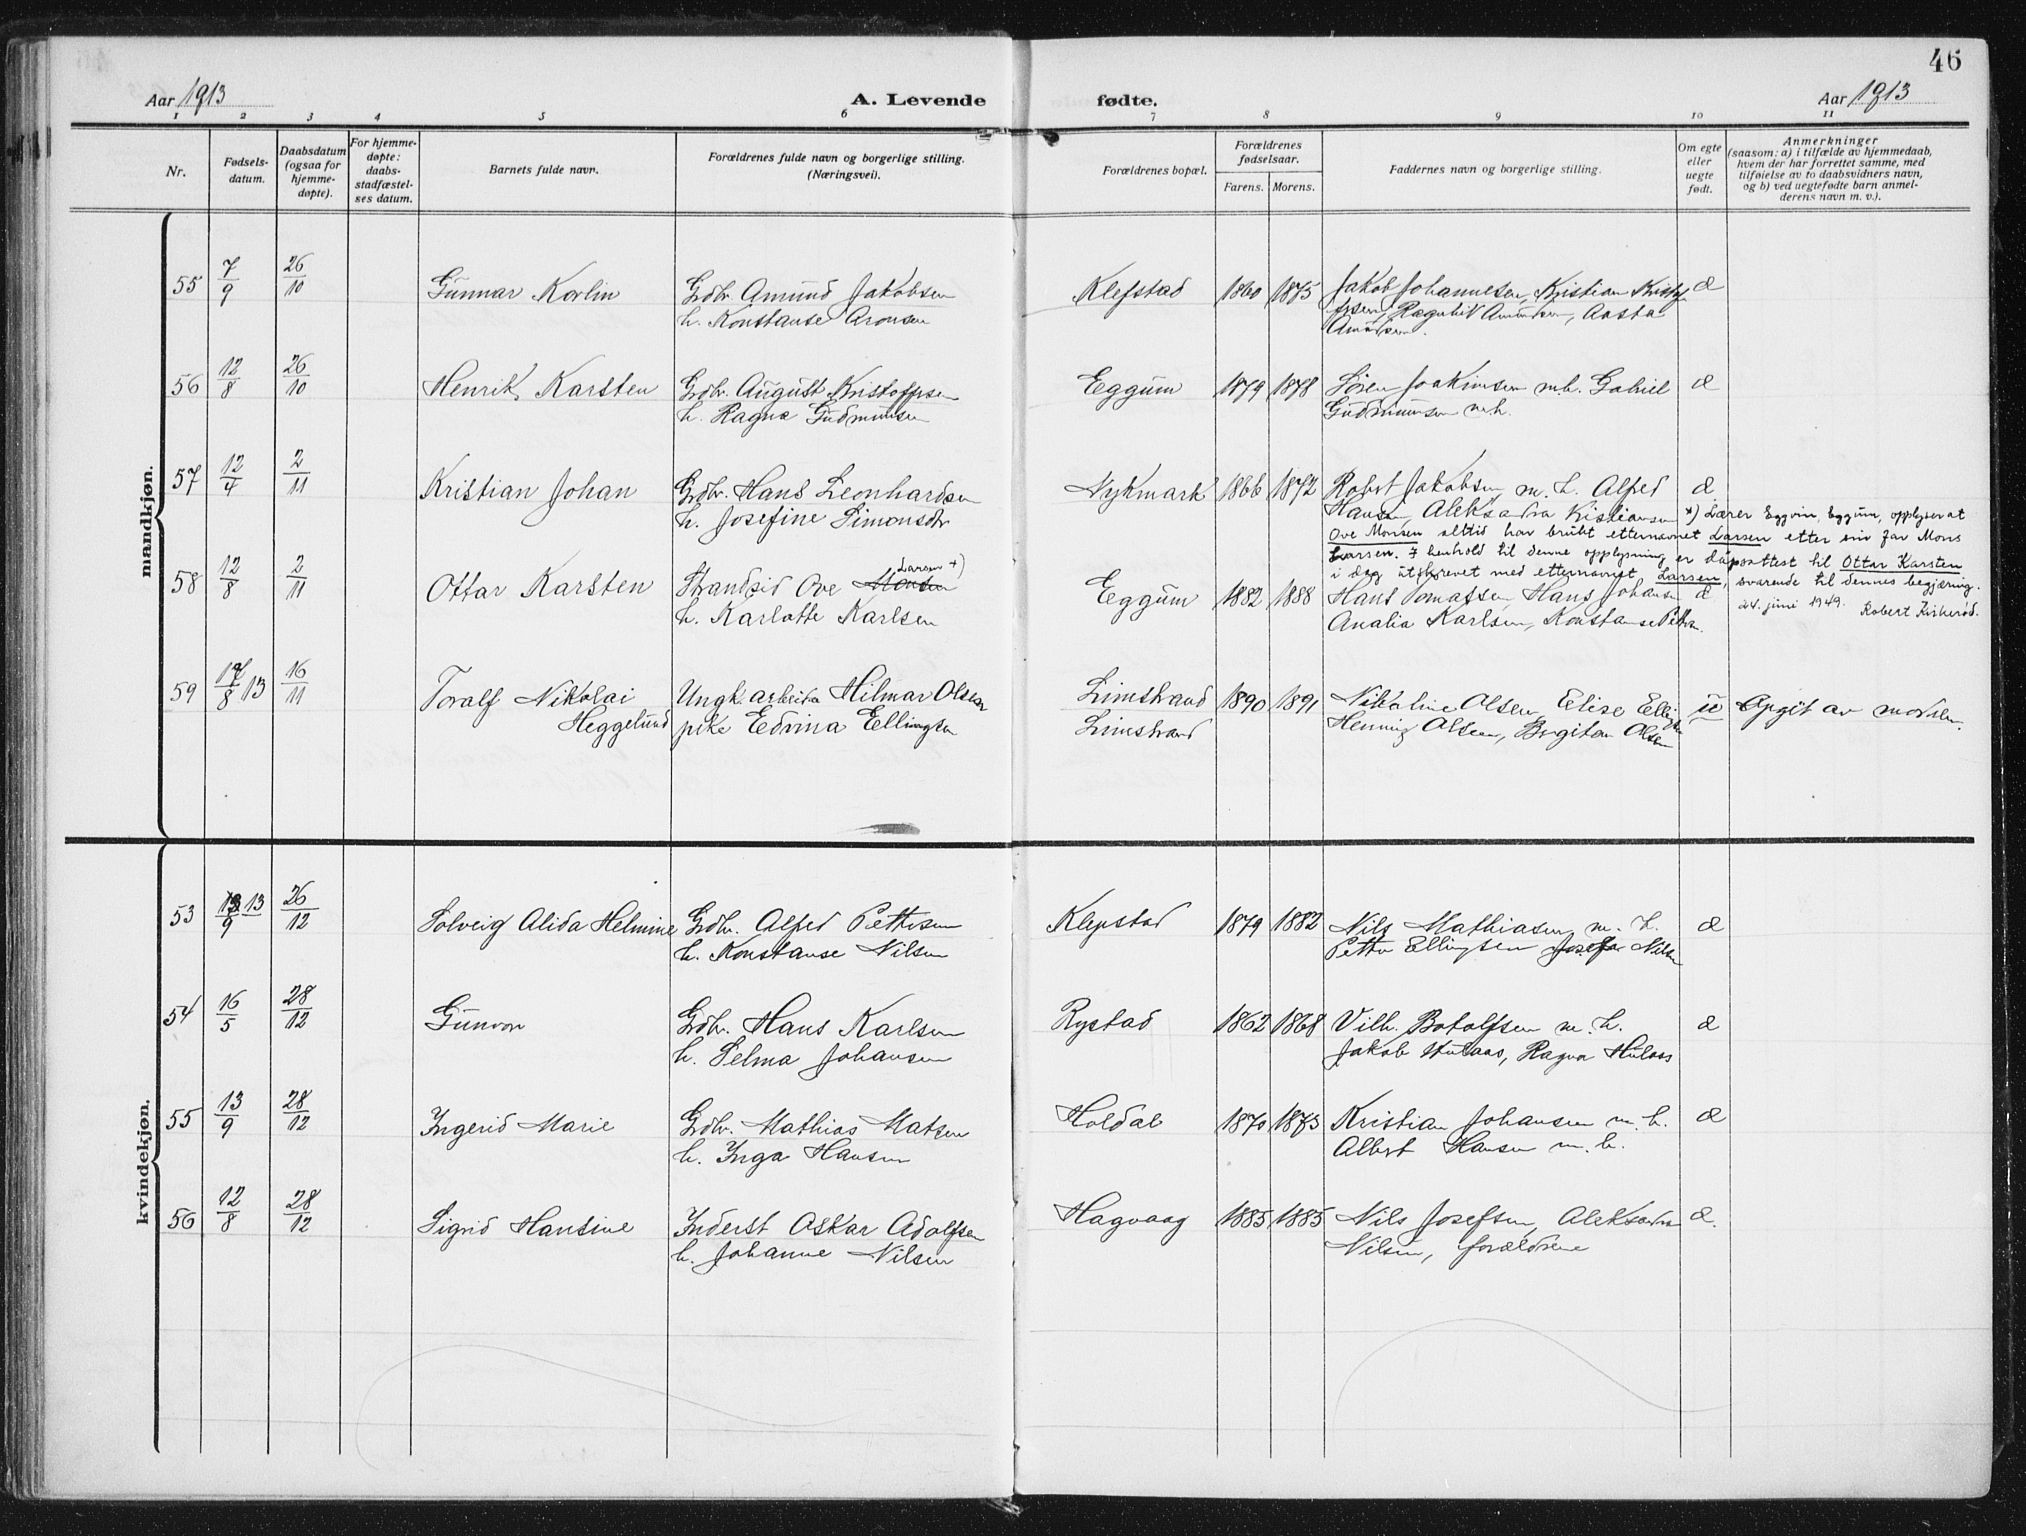 46
Aar 1913 A. Levende fødte. Aar 1913
1 2 3 4 5 6 7 8 9 10 11
Nr.
Fødsels-
datum.
Daabsdatum
(ogsaa for
hjemme-
døpte).
For hjemme-
døpte:
daabs-
stadfæstel-
ses datum.
Barnets fulde navn.
Forældrenes fulde navn og borgerlige stilling.
(Næringsvei).
Forældrenes bopæl.
Forældrenes
fødselsaar.
Farens. Morens.
Faddernes navn og borgerlige stilling.
Om egte
eller
uegte
født.
Anmerkninger
(saasom: a) i tilfælde av hjemmedaab,
hvem der har forrettet samme, med
tilføielse av to daabsvidners navn,
og b) ved uegtefødte barn anmel-
derens navn m. v.).
mandkjøn.
55 7/9 26/10 Gunnar Korlin Grdbr. Amund Jakobsen Klefstad 1860 1875 Jakob Johannesen, Kristian Kristof
h. Konstanse Aronsen fersen, Ragnhild Amundsen, Aasta
Amundsen.
56 12/8 26/10 Henrik Karsten Grdbr. August Kristoffersen Eggum 1879 1878 Søren Joakimsen m.h. Gabriel
h. Ragna Gudmunsen Gudmunsen m.h.
57 12/4 2/11 Kristian Johan Grdbr. Hans Leonhardsen Nykmark 1866 1872 Robert Jakobsen m. h. Alfred
h. Josefine Simonsdtr Hansen, Aleksandra Kristiansen
*) Lærer Eggvin, Eggum, opplyser at
Ove Monsen alltid har brukt etternavnet Larsen etter sin far Mons
Larsen. I henhold til denne opplysning er dåpsattest til Ottar Karsten
i dag utskrevet med etternavnet Larsen, svarende til dennes begjæring.
24. juni 1949. Robert
Larsen *)
58 12/8 2/11 Ottar Karsten Strandsid Ove Monsen Eggum 1882 1888 Hans Tomassen, Hans Johansen
h. Karlotte Karlsen Analia Karlsen, Konstanse Petters.
59 17/8 13 16/11 Toralf Nikolai Ungk. arbeider Hilmar Olsen Limstrand 1890 1891 Nikoline Olsen, Elise Ellingsen u Opgit av moderen.
Heggelund pike Edvina Ellingsen Limstrand Henning Olsen, Birgitte Olsen
kvindekjøn.
53 /9 13 26/12 Solveig Alida Helmine Grdbr. Alfred Pettersen Klepstad 1879 1882 Nils Mathiasen m. h.
h. Konstanse Nilsen Petter Ellingsen Josefa Nilsen
54 16/5 28/12 Gunvor Grdbr. Hans Karlsen Rystad 1862 1868 Vilh. Botolfsen m. h.
h. Selma Johansen Jakob Hulaas, Ragna Hulaas
55 13/9 28/12 Ingerid Marie Grdbr. Mathias Matsen Holdal 1870 1873 Kristian Johansen m. h.
h. Inga Hansen Albert Hansen m. h.
56 12/8 28/12 Sigrid Hansine Inderst Oskar Adolfsen Hagvaag 1885 1885 Nils Josefsen, Aleksandra
h. Johanne Nilsen Nilsen, forældrene